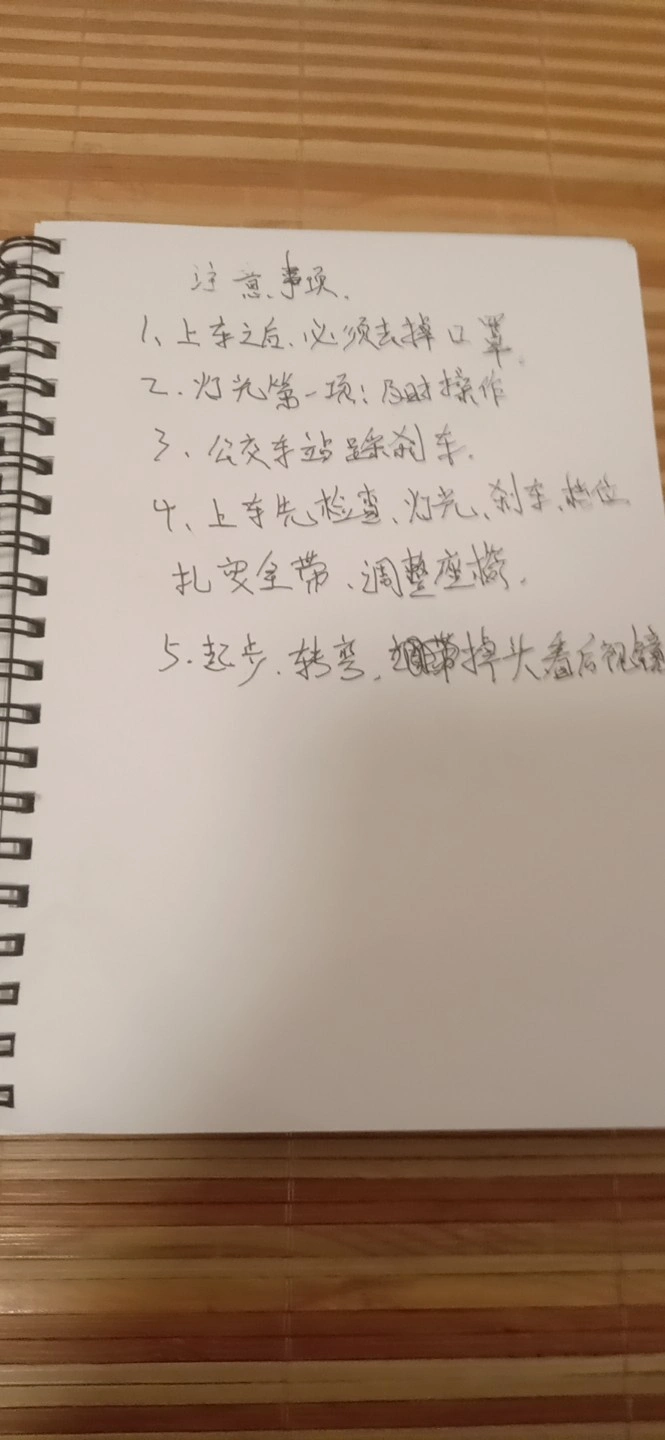 注意事项.
1、上车之后、必须去掉口罩.
2.灯光第一项:及时操作
3、公交车站踩刹车.
4、上车先检查、灯光、刹车、档位
扎安全带、调整座椅.
5.起步.转弯.掉头看后视镜